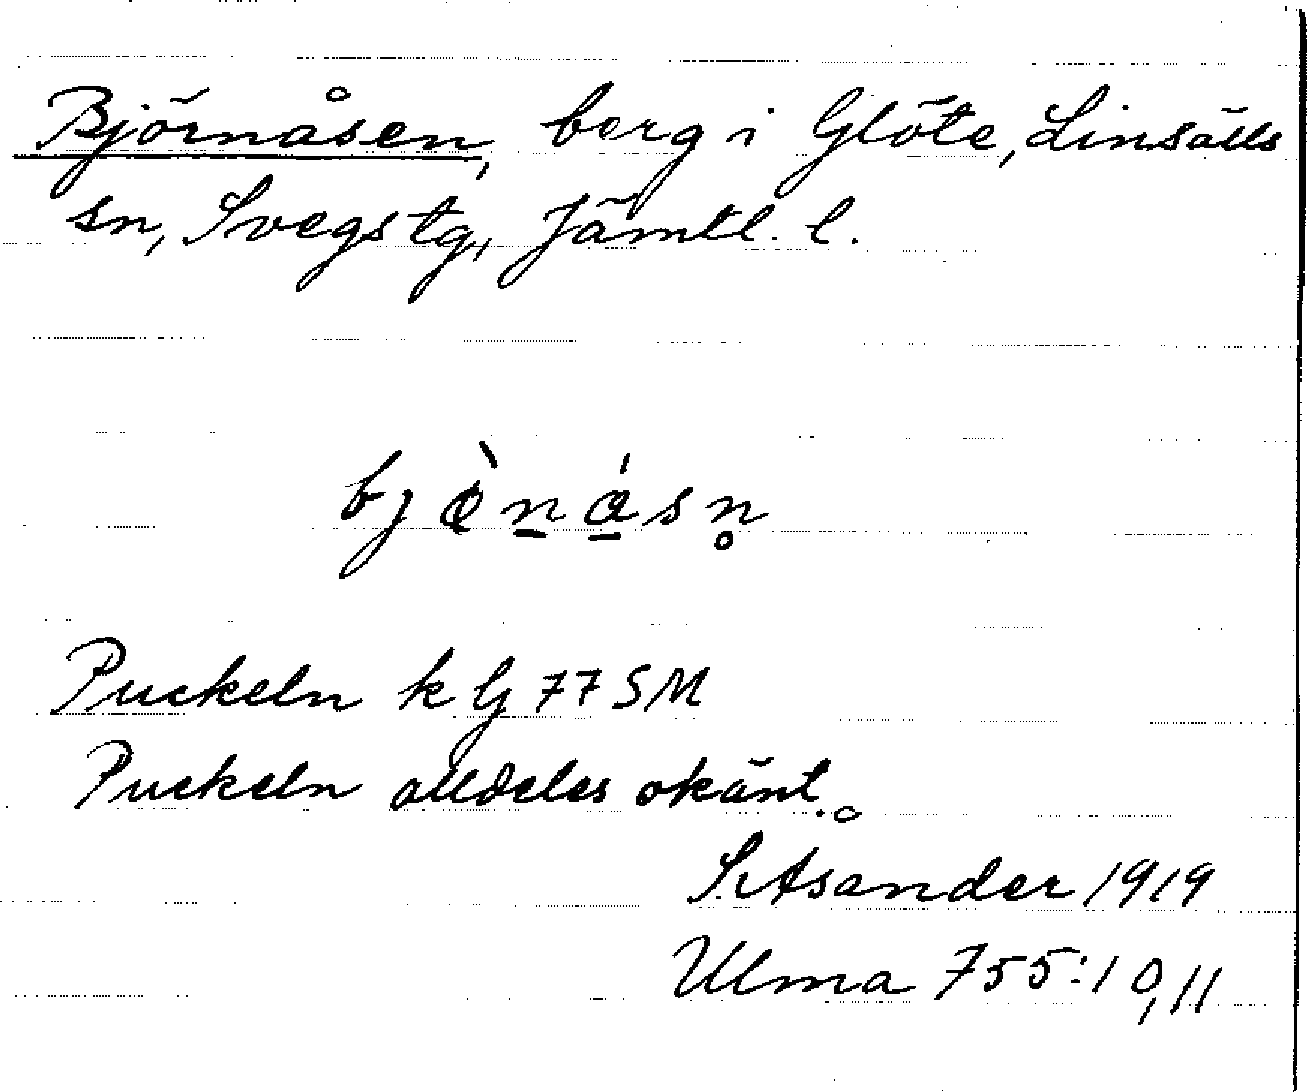 Björnåsen, berg i Glöte, Linsälls
sn, Svegs tg, Jämtl. l.
Puckeln k G 77 SM
Puckeln alldeles okänt.
S. Åsander 1919
Ulma 755:10,11